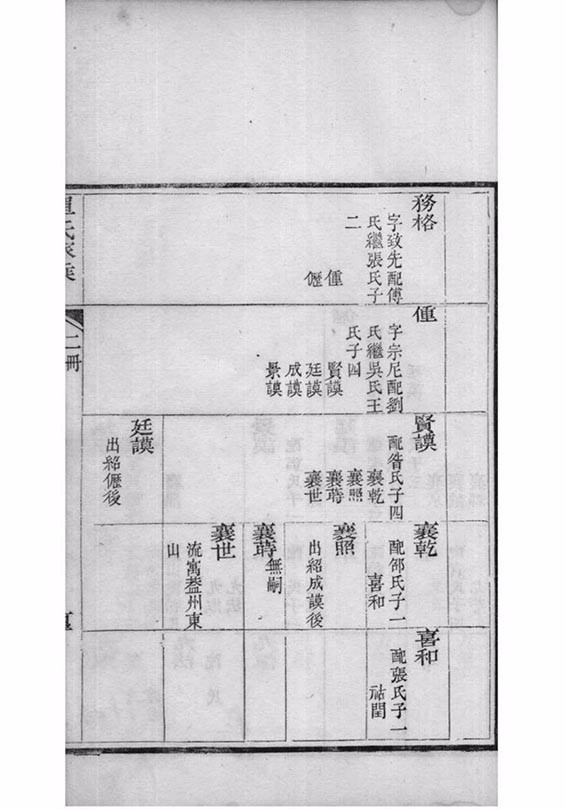 務格
字致先配傅
氏繼張氏子
二
偅
㒧
偅
字宗尼配劉
氏繼吳氏王
氏子四
賢謨
廷謨
成謨
景謨
賢謨
配昝氏子四
襄乾
襄照
襄蒔
襄世
廷謨
出紹㒧後
襄乾
配邵氏子一
喜和
襄照
出紹成謨後
襄蒔
無嗣
襄世
流寓盩州東
山
喜和
配張氏子一
祜閏
二冊